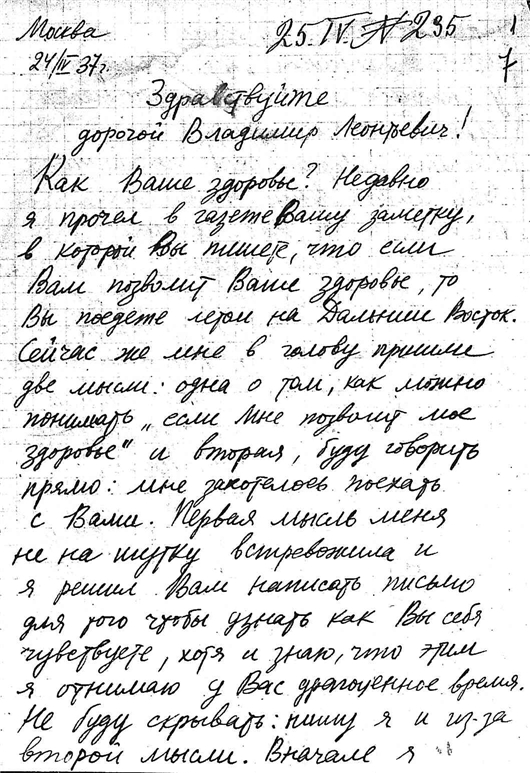 Москва
24/IV 37г.
25.IV. N 295
1
7
Здравствуйте
дорогой Владимир Леонтьевич!
Как Ваше здоровье? Недавно
я прочел в газете Вашу заметку,
в которой Вы пишете, что если
Вам позволит Ваше здоровье, то
Вы поедете летом на Дальний Восток.
Сейчас же мне в голову пришли
две мысли: одна о том, как можно
понимать „если мне позволит мое
здоровье" и вторая, буду говорить
прямо: мне захотелось поехать
с Вами. Первая мысль меня
не на шутку встревожила и
я решил Вам написать письмо
для того чтобы узнать как Вы себя
чувствуете, хотя и знаю, что этим
я отнимаю у Вас драгоценное время.
Не буду скрывать: пишу я и из-за
второй мысли. Вначале я